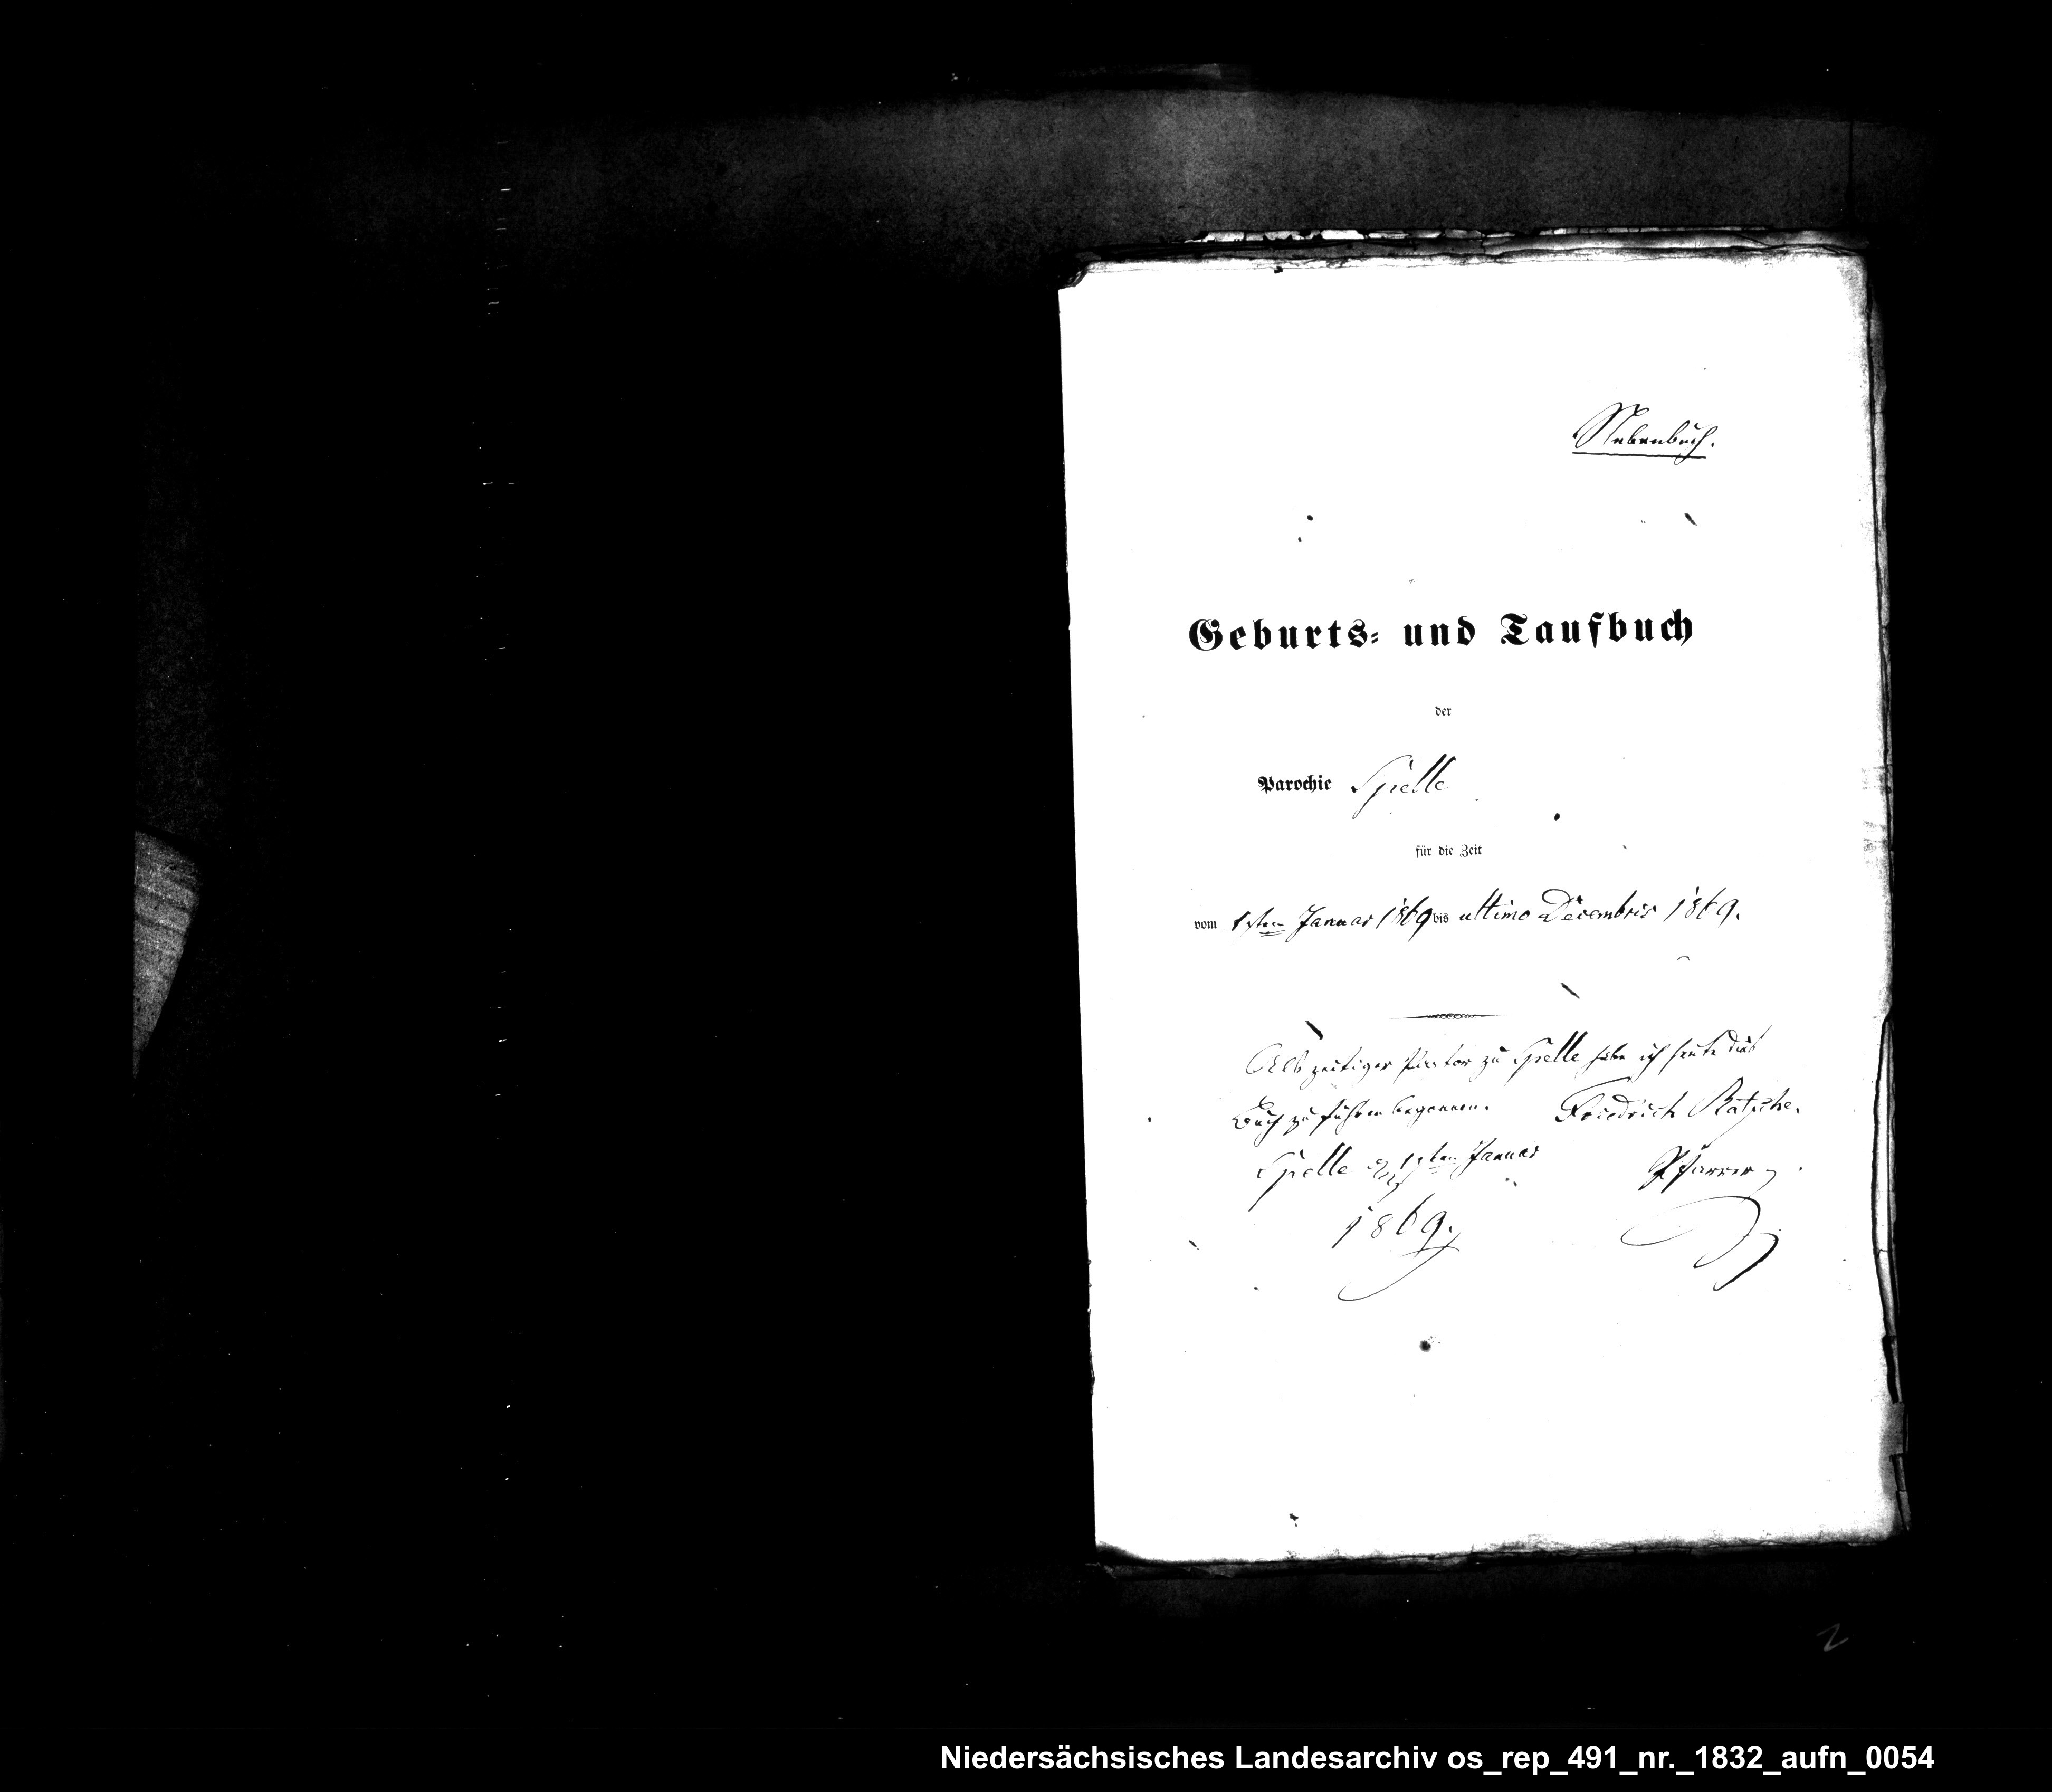 Nebenbuch.
Geburts- und Taufbuch
der
Parochie Spelle
für die Zeit
vom 1sten Januar 1869 bis ultimo Decembris 1869.
Als zeitiger Pastor zu Spelle habe ich heute dies
Buch zu führen begonnen. Friedrich Ratsche.
Spelle 1sten Januar Pfarrer
1869.
2
Niedersächsisches Landesarchiv os_rep_491_nr._1832_aufn_0054